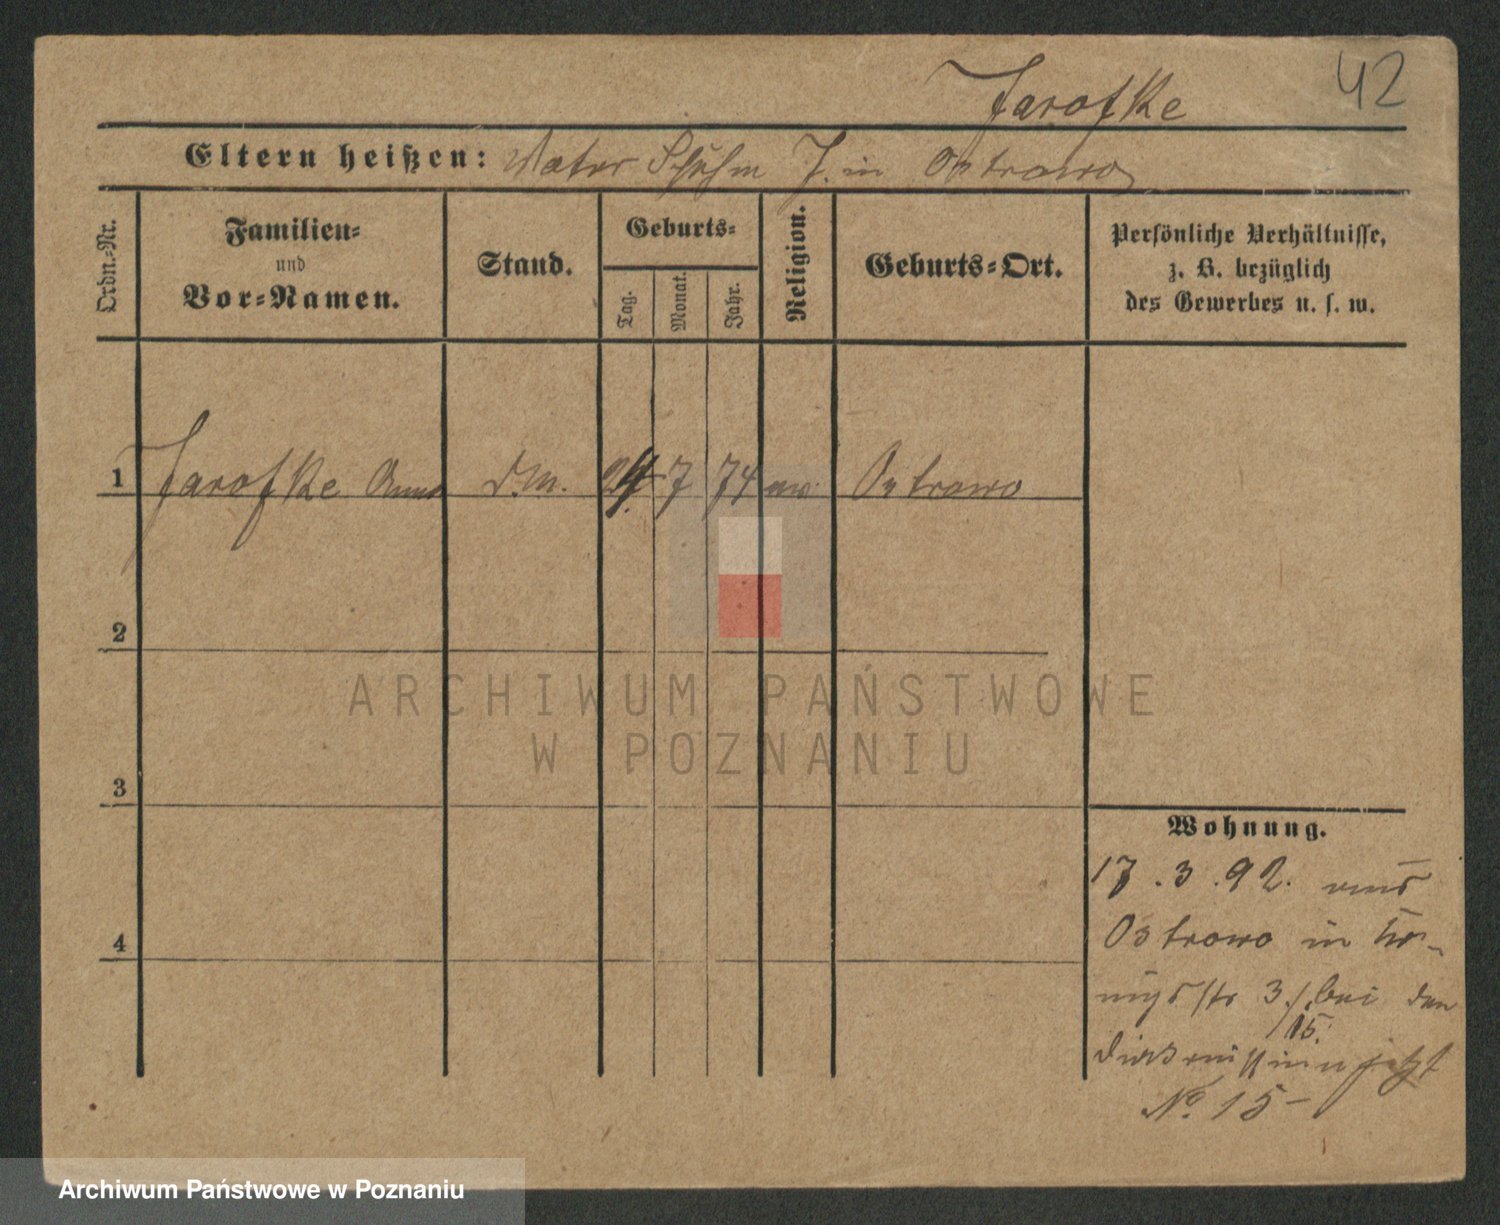 42
Jaroschke
Eltern heißen: Vater Schuhm J. in Ostrowo
Ordn.-Nr.
Familien-
und
Vor-Namen.
Stand.
Geburts-
Tag.
Monat.
Jahr.
Religion.
Geburts-Ort.
Persönliche Verhältnisse,
z. B. bezüglich
des Gewerbes u. s. w.
1 Anna d.M. 24. 7 74 ev. Ostrowo
2
ARCHIWUM PAŃSTWOWE
W POZNANIU
3
Wohnung.
17.3.92. aus
4
Ostrowo in Kö-
nigsstr 3/15. bei den
Diakonissinnen jetzt
No. 15 -
Archiwum Państwowe w Poznaniu